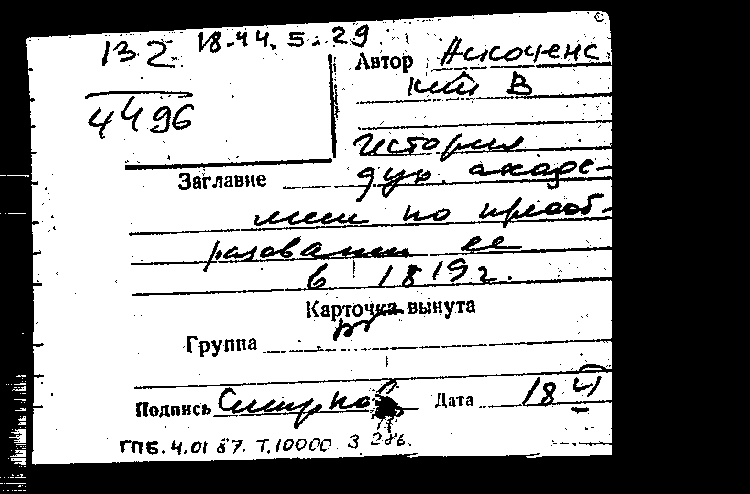 132 18.44.5.29
4496
Автор Аскоченс
кий В
Заглавие История
дух. акаде-
мии по преоб-
разовании ее
в 1819 г.
Карточка вынута
Группа
Подпись Смирнов Дата 18
ГПБ. 4.01 87. Т.10000 З 286.